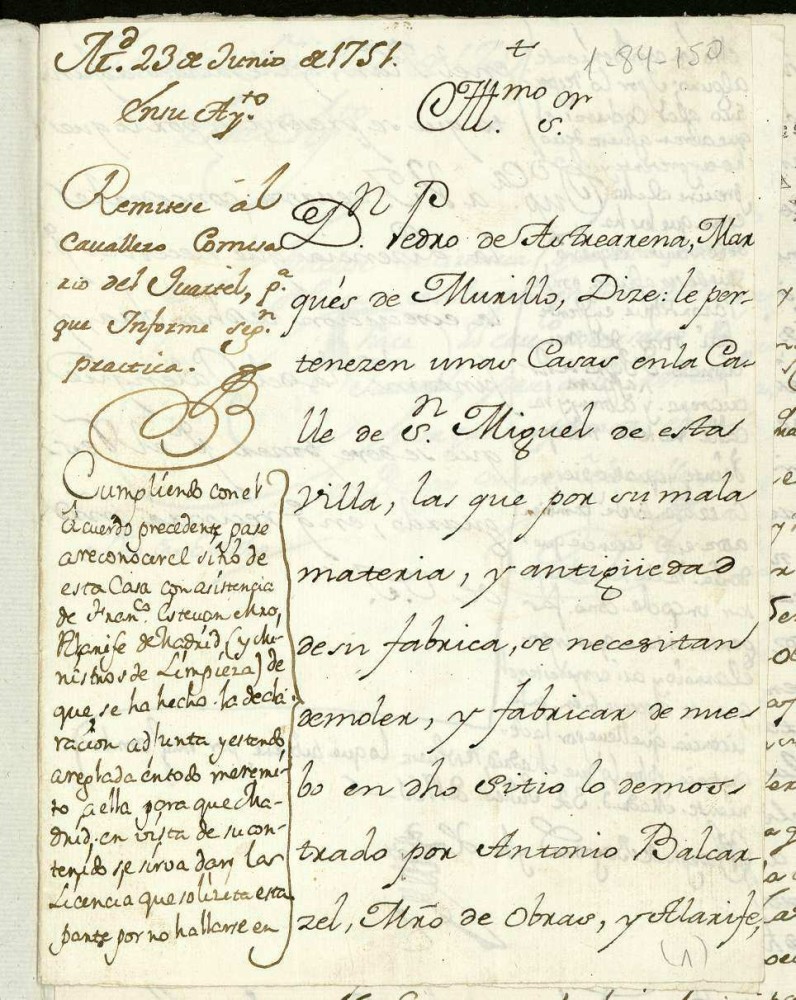 M.d 23 de Junio de 1751.
En su Ay.to
Remitese al
Cavallero Comisa
rio del Quartel, p.a
que Informe seg.n
practica.
Cumpliendo con el
Acuerdo precedente pase
a reconocer el sitio de
esta Casa con asistencia
de Fran.co Estevan Mro,
Alarife de Madrid, (y Mi-
nistros de Limpieza) de
que se ha hecho la decla-
racion adjunta y estando
arreglada en todo me remi-
to a ella para que Ma-
drid en vista de su con-
tenido se sirva dar las
Licencia que solizita esta
parte por no hallarse en
+
1-84-150
Ill.mo S.or
D.n Pedro de Astrearena, Mar
qués de Murillo, Dize: le per-
tenezen unas Casas en la Ca-
lle de S.n Miguel de esta
Villa, las que por su mala
materia, y antigüedad
de su fabrica, se necesitan
demoler, y fabricar de nue-
bo en dho sitio lo demos-
trado por Antonio Balcar-
zel, Mro de Obras, y Alarife,
(1)